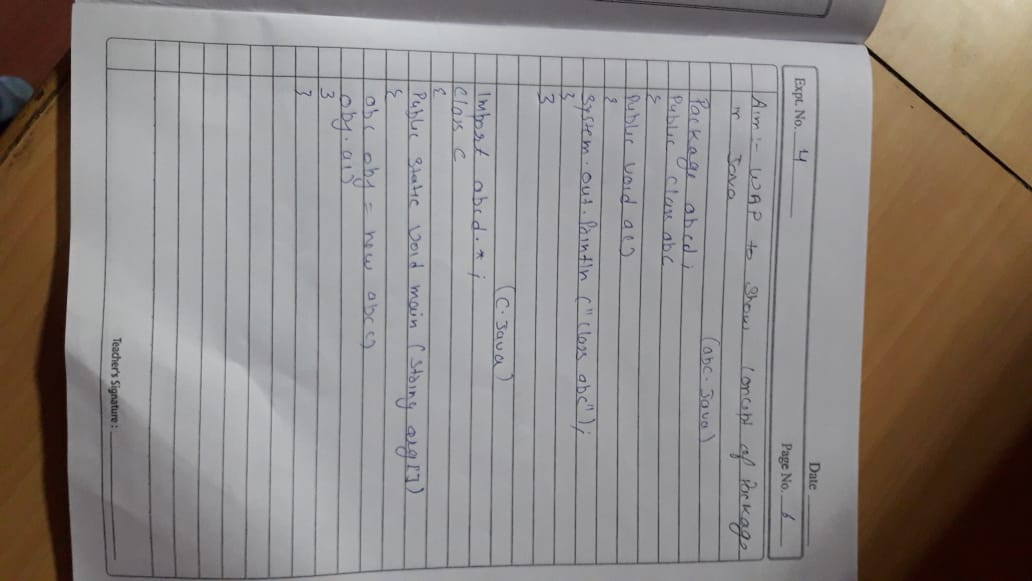 Date
Expt. No. 4
Page No. 6
Aim:- WAP to show concept of Package
in Java
(abc.Java)
Package abcd;
Public class abc
{
Public void a()
{
System.out.Println ("class abc");
}
}
(c.Java)
Import abcd.*;
Class C
{
Public static void main (String arg[])
{
abc obj = new abc()
obj.a()
}
}
Teacher's Signature: